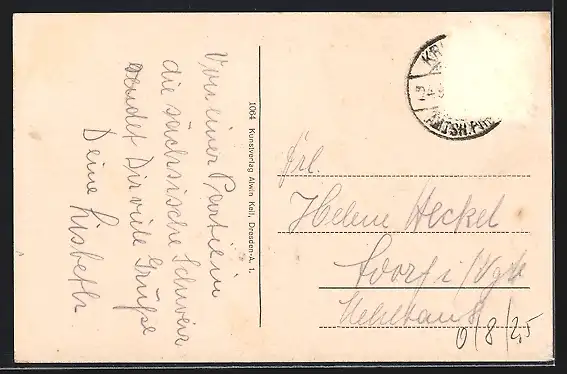 Von einer Partie in
die sächsische Schweiz
sendet Dir viele Grüße
Deine Lisbeth
1064 Kunstverlag Alwin Keil, Dresden-A. 1.
KR
AMTSH. PIR
Frl.
Helene Heckel
Adorf i/Vgtl
0/8/25